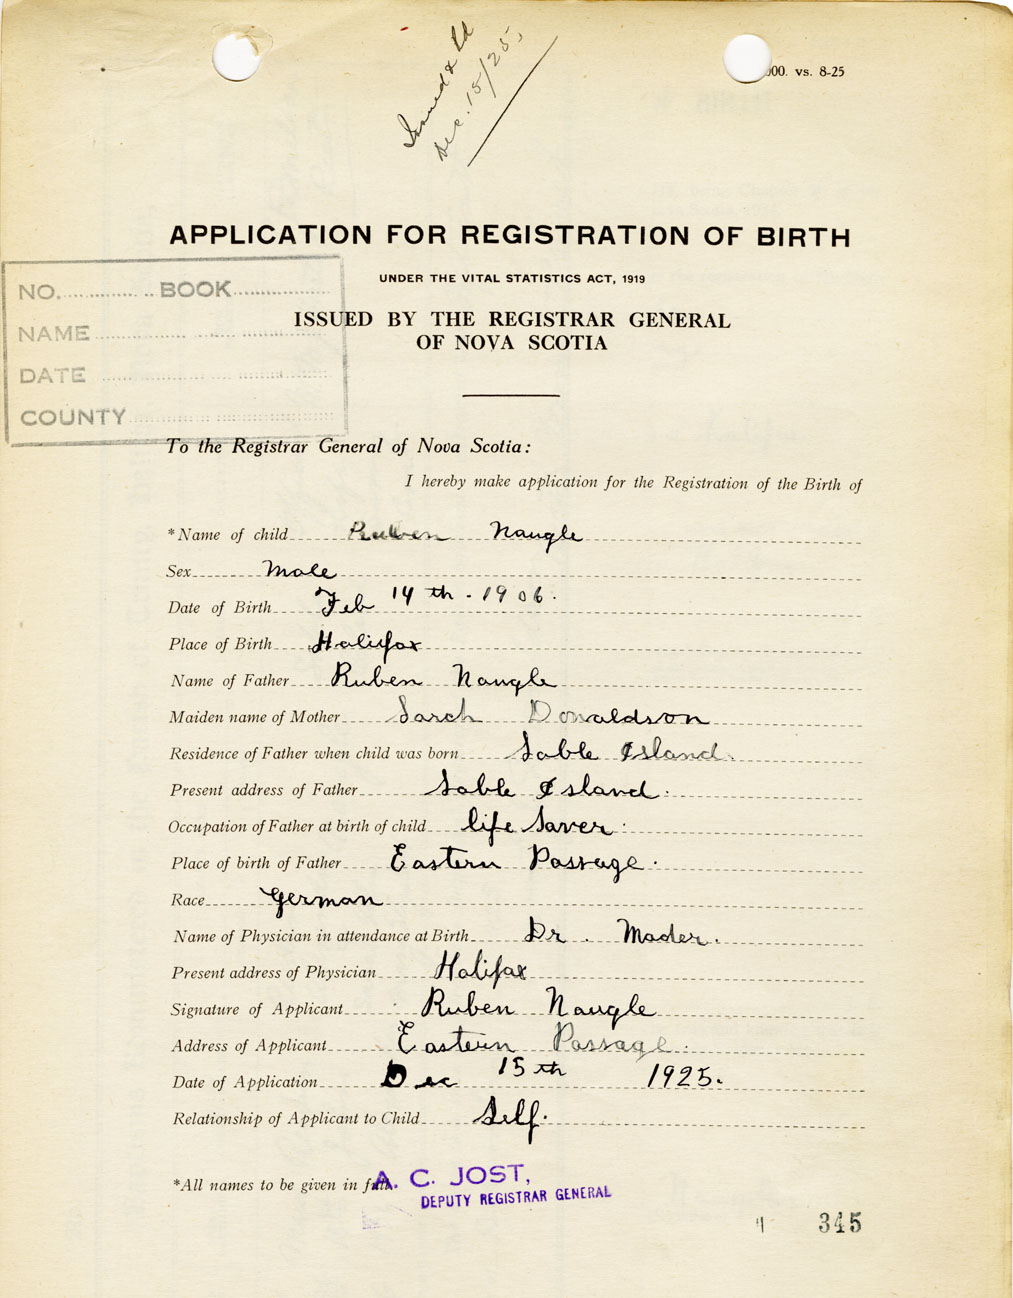 Issued &
Dec. 15/25,
000. vs. 8-25
APPLICATION FOR REGISTRATION OF BIRTH
UNDER THE VITAL STATISTICS ACT, 1919
NO. BOOK
ISSUED BY THE REGISTRAR GENERAL
NAME
OF NOVA SCOTIA
DATE
COUNTY
To the Registrar General of Nova Scotia:
I hereby make application for the Registration of the Birth of
*Name of child Ruben Naugle
Sex Male
Date of Birth Feb 14th - 1906.
Place of Birth Halifax
Name of Father Ruben Naugle
Maiden name of Mother Sarah Donaldson
Residence of Father when child was born Sable Island.
Present address of Father Sable Island.
Occupation of Father at birth of child life Saver.
Place of birth of Father Eastern Passage.
Race German
Name of Physician in attendance at Birth Dr. Mader.
Present address of Physician Halifax
Signature of Applicant Ruben Naugle
Address of Applicant Eastern Passage.
Date of Application Dec 15th 1925.
Relationship of Applicant to Child Self.
*All names to be given in full.
A. C. JOST,
DEPUTY REGISTRAR GENERAL
345